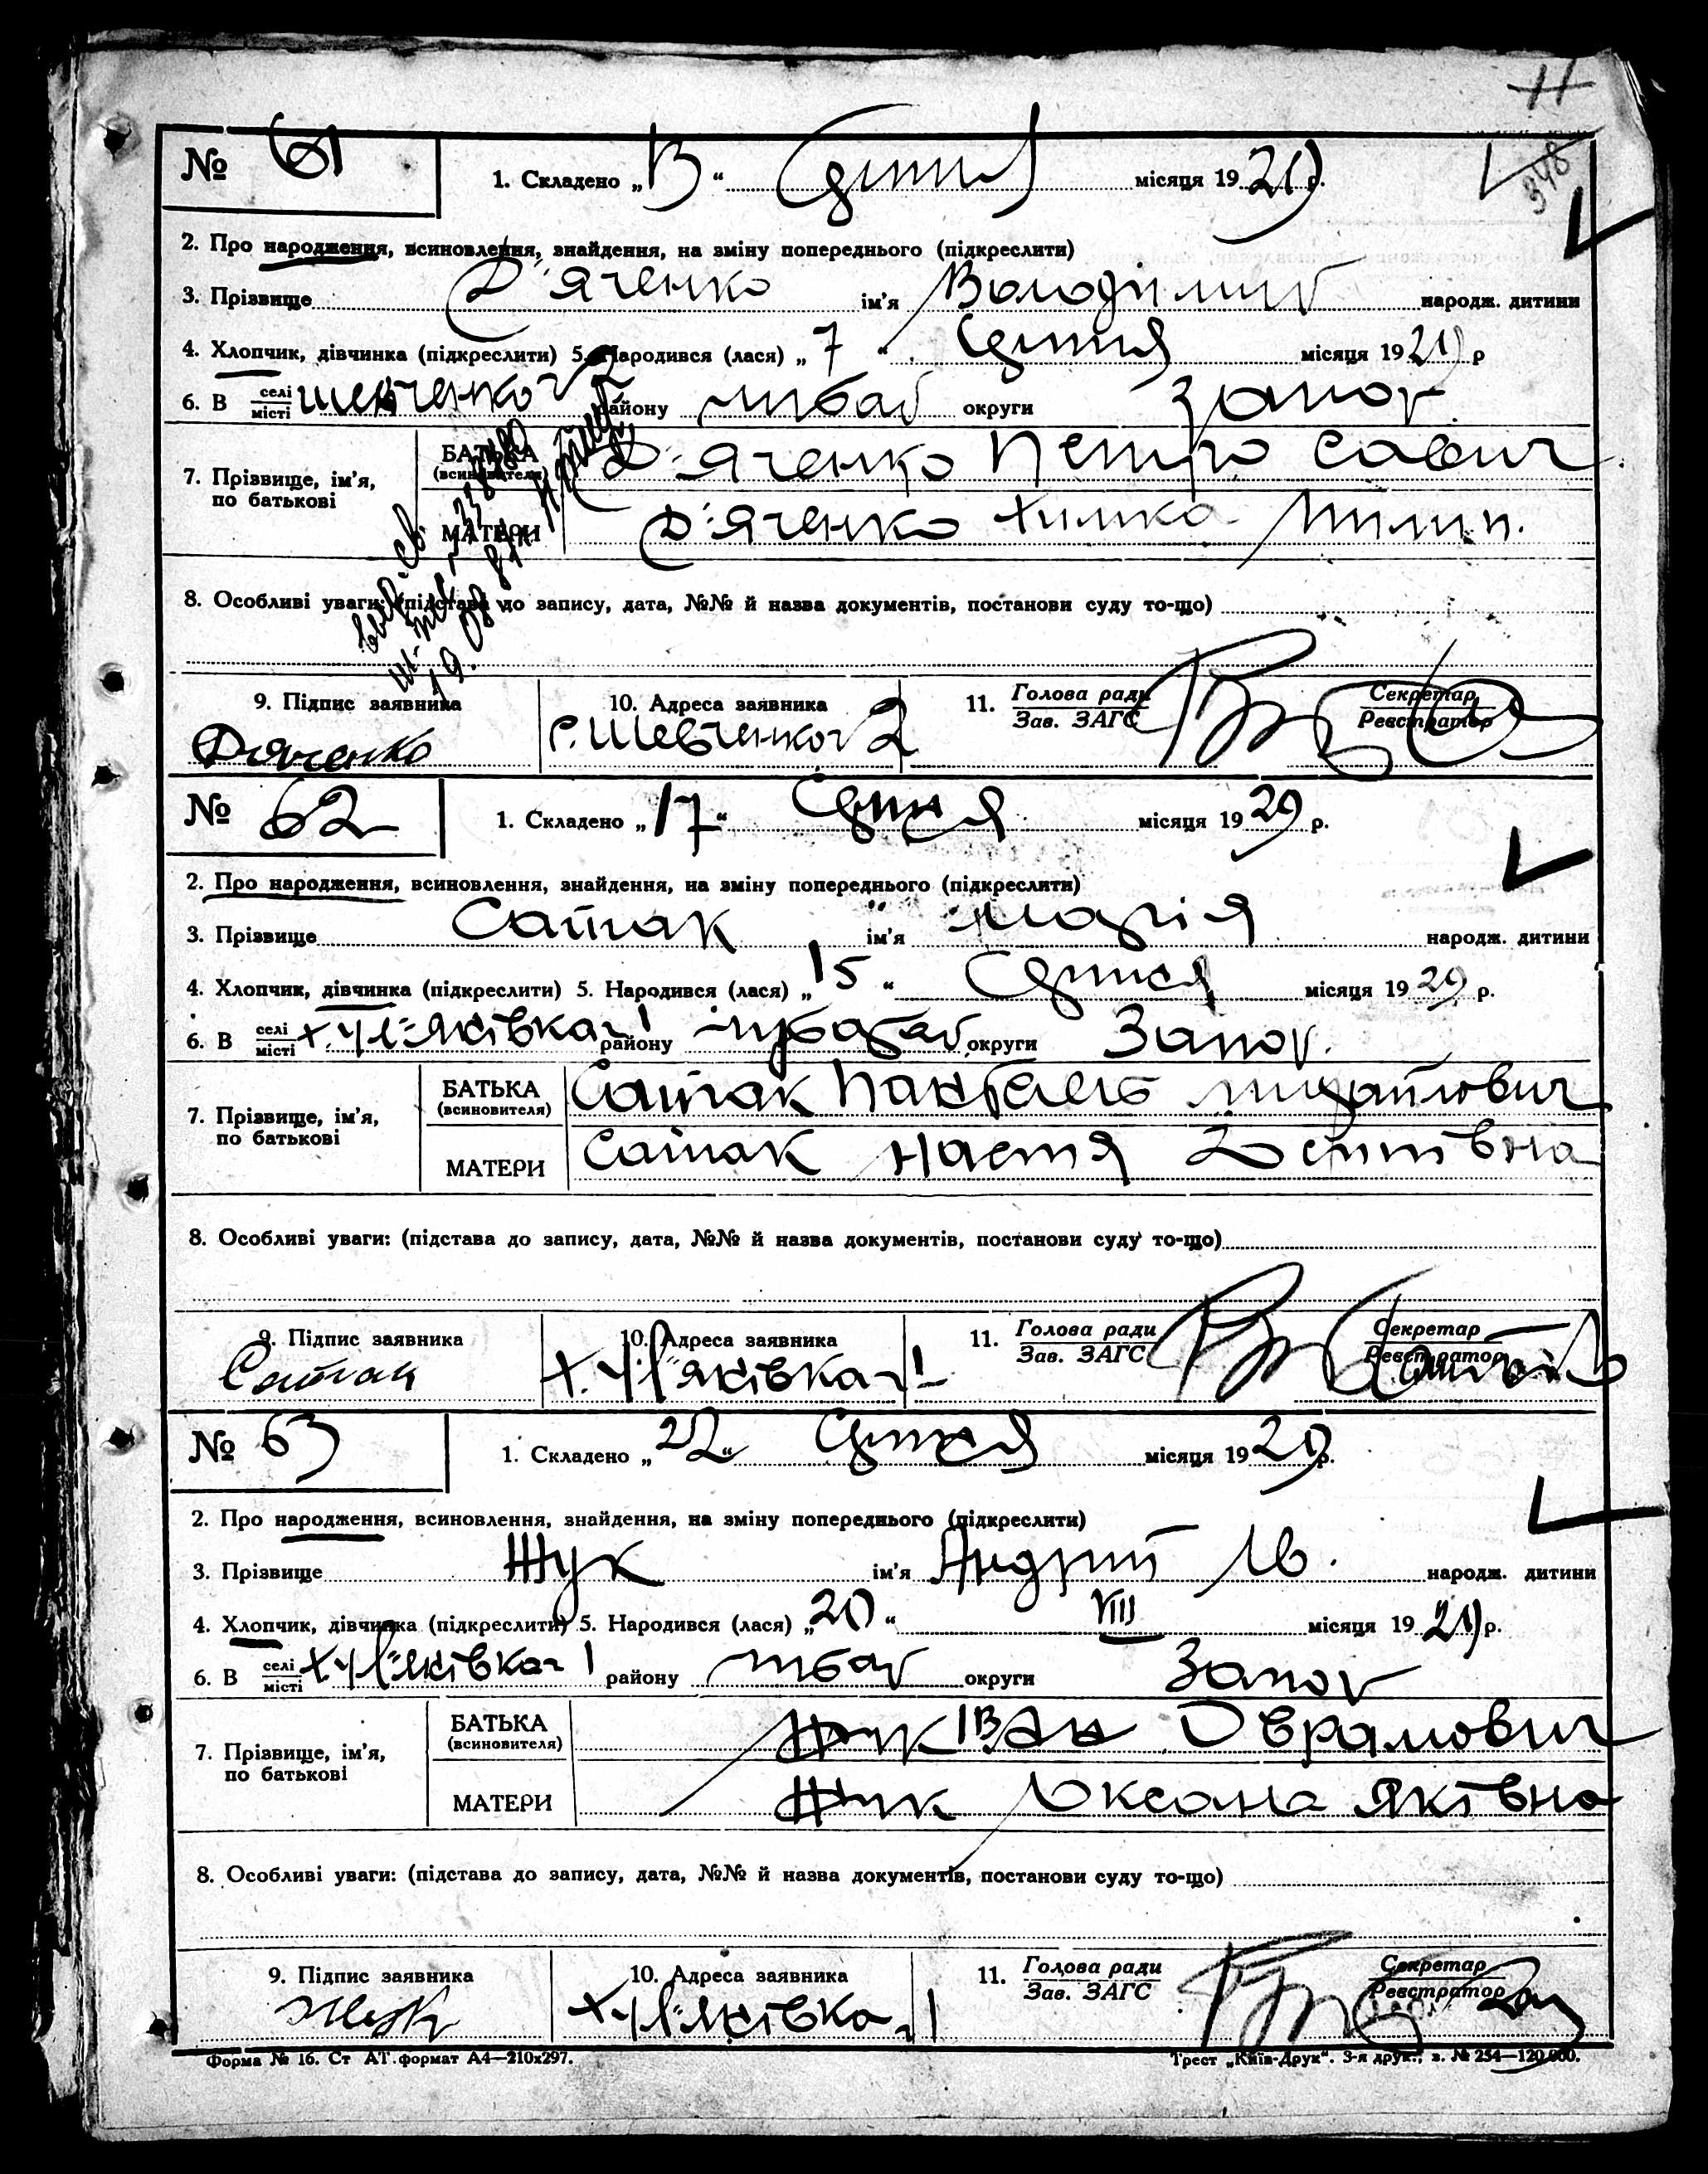 11
348
№ 61 1. Складено „13“ Серпня місяця 1929 р.
2. Про народження, всиновлення, знайдення, на зміну попереднього (підкреслити)
3. Прізвище Д'яченко ім'я Володимир народж. дитини
4. Хлопчик, дівчинка (підкреслити) 5. Народився (лася) „7“ Серпня місяця 1929 р
6. В селі/місті Шевченко 2 району округи Запор
7. Прізвище, ім'я, по батькові
БАТЬКА (всиновителя) Д'яченко Петро Савич
МАТЕРИ Д'яченко Химка Пилип.
8. Особливі уваги: (підстава до запису, дата, №№ й назва документів, постанови суду то-що)
9. Підпис заявника 10. Адреса заявника 11. Голова ради/Зав. ЗАГС Секретар/Реєстратор
Дяченко с. Шевченко 2
№ 62 1. Складено „17“ Серпня місяця 1929 р.
2. Про народження, всиновлення, знайдення, на зміну попереднього (підкреслити)
3. Прізвище Сапак ім'я Марія народж. дитини
4. Хлопчик, дівчинка (підкреслити) 5. Народився (лася) „15“ Серпня місяця 1929 р.
6. В селі/місті району округи Запор.
7. Прізвище, ім'я, по батькові
БАТЬКА (всиновителя) Сапак Пантелей Михайлович
МАТЕРИ Сапак Настя
8. Особливі уваги: (підстава до запису, дата, №№ й назва документів, постанови суду то-що)
9. Підпис заявника 10. Адреса заявника 11. Голова ради/Зав. ЗАГС Секретар/Реєстратор
№ 63 1. Складено „22“ Серпня місяця 1929 р.
2. Про народження, всиновлення, знайдення, на зміну попереднього (підкреслити)
3. Прізвище Жук ім'я Андрій Ів. народж. дитини
4. Хлопчик, дівчинка (підкреслити) 5. Народився (лася) „20“ VIII місяця 1929 р.
6. В селі/місті району округи Запор
7. Прізвище, ім'я, по батькові
БАТЬКА (всиновителя) Жук Іван Оврамович
МАТЕРИ Жук Оксана Яківна
8. Особливі уваги: (підстава до запису, дата, №№ й назва документів, постанови суду то-що)
9. Підпис заявника 10. Адреса заявника 11. Голова ради/Зав. ЗАГС Секретар/Реєстратор
Жук
Форма № 16. Ст АТ. формат А4—210х297. Трест „Київ-Друк“. 3-я друк., з. № 254—120.000.